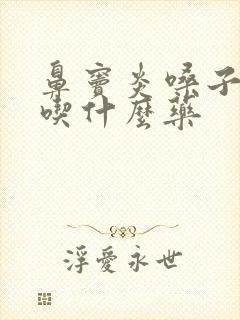 鼻竇炎嗓子
喫什麼藥
浮愛永世